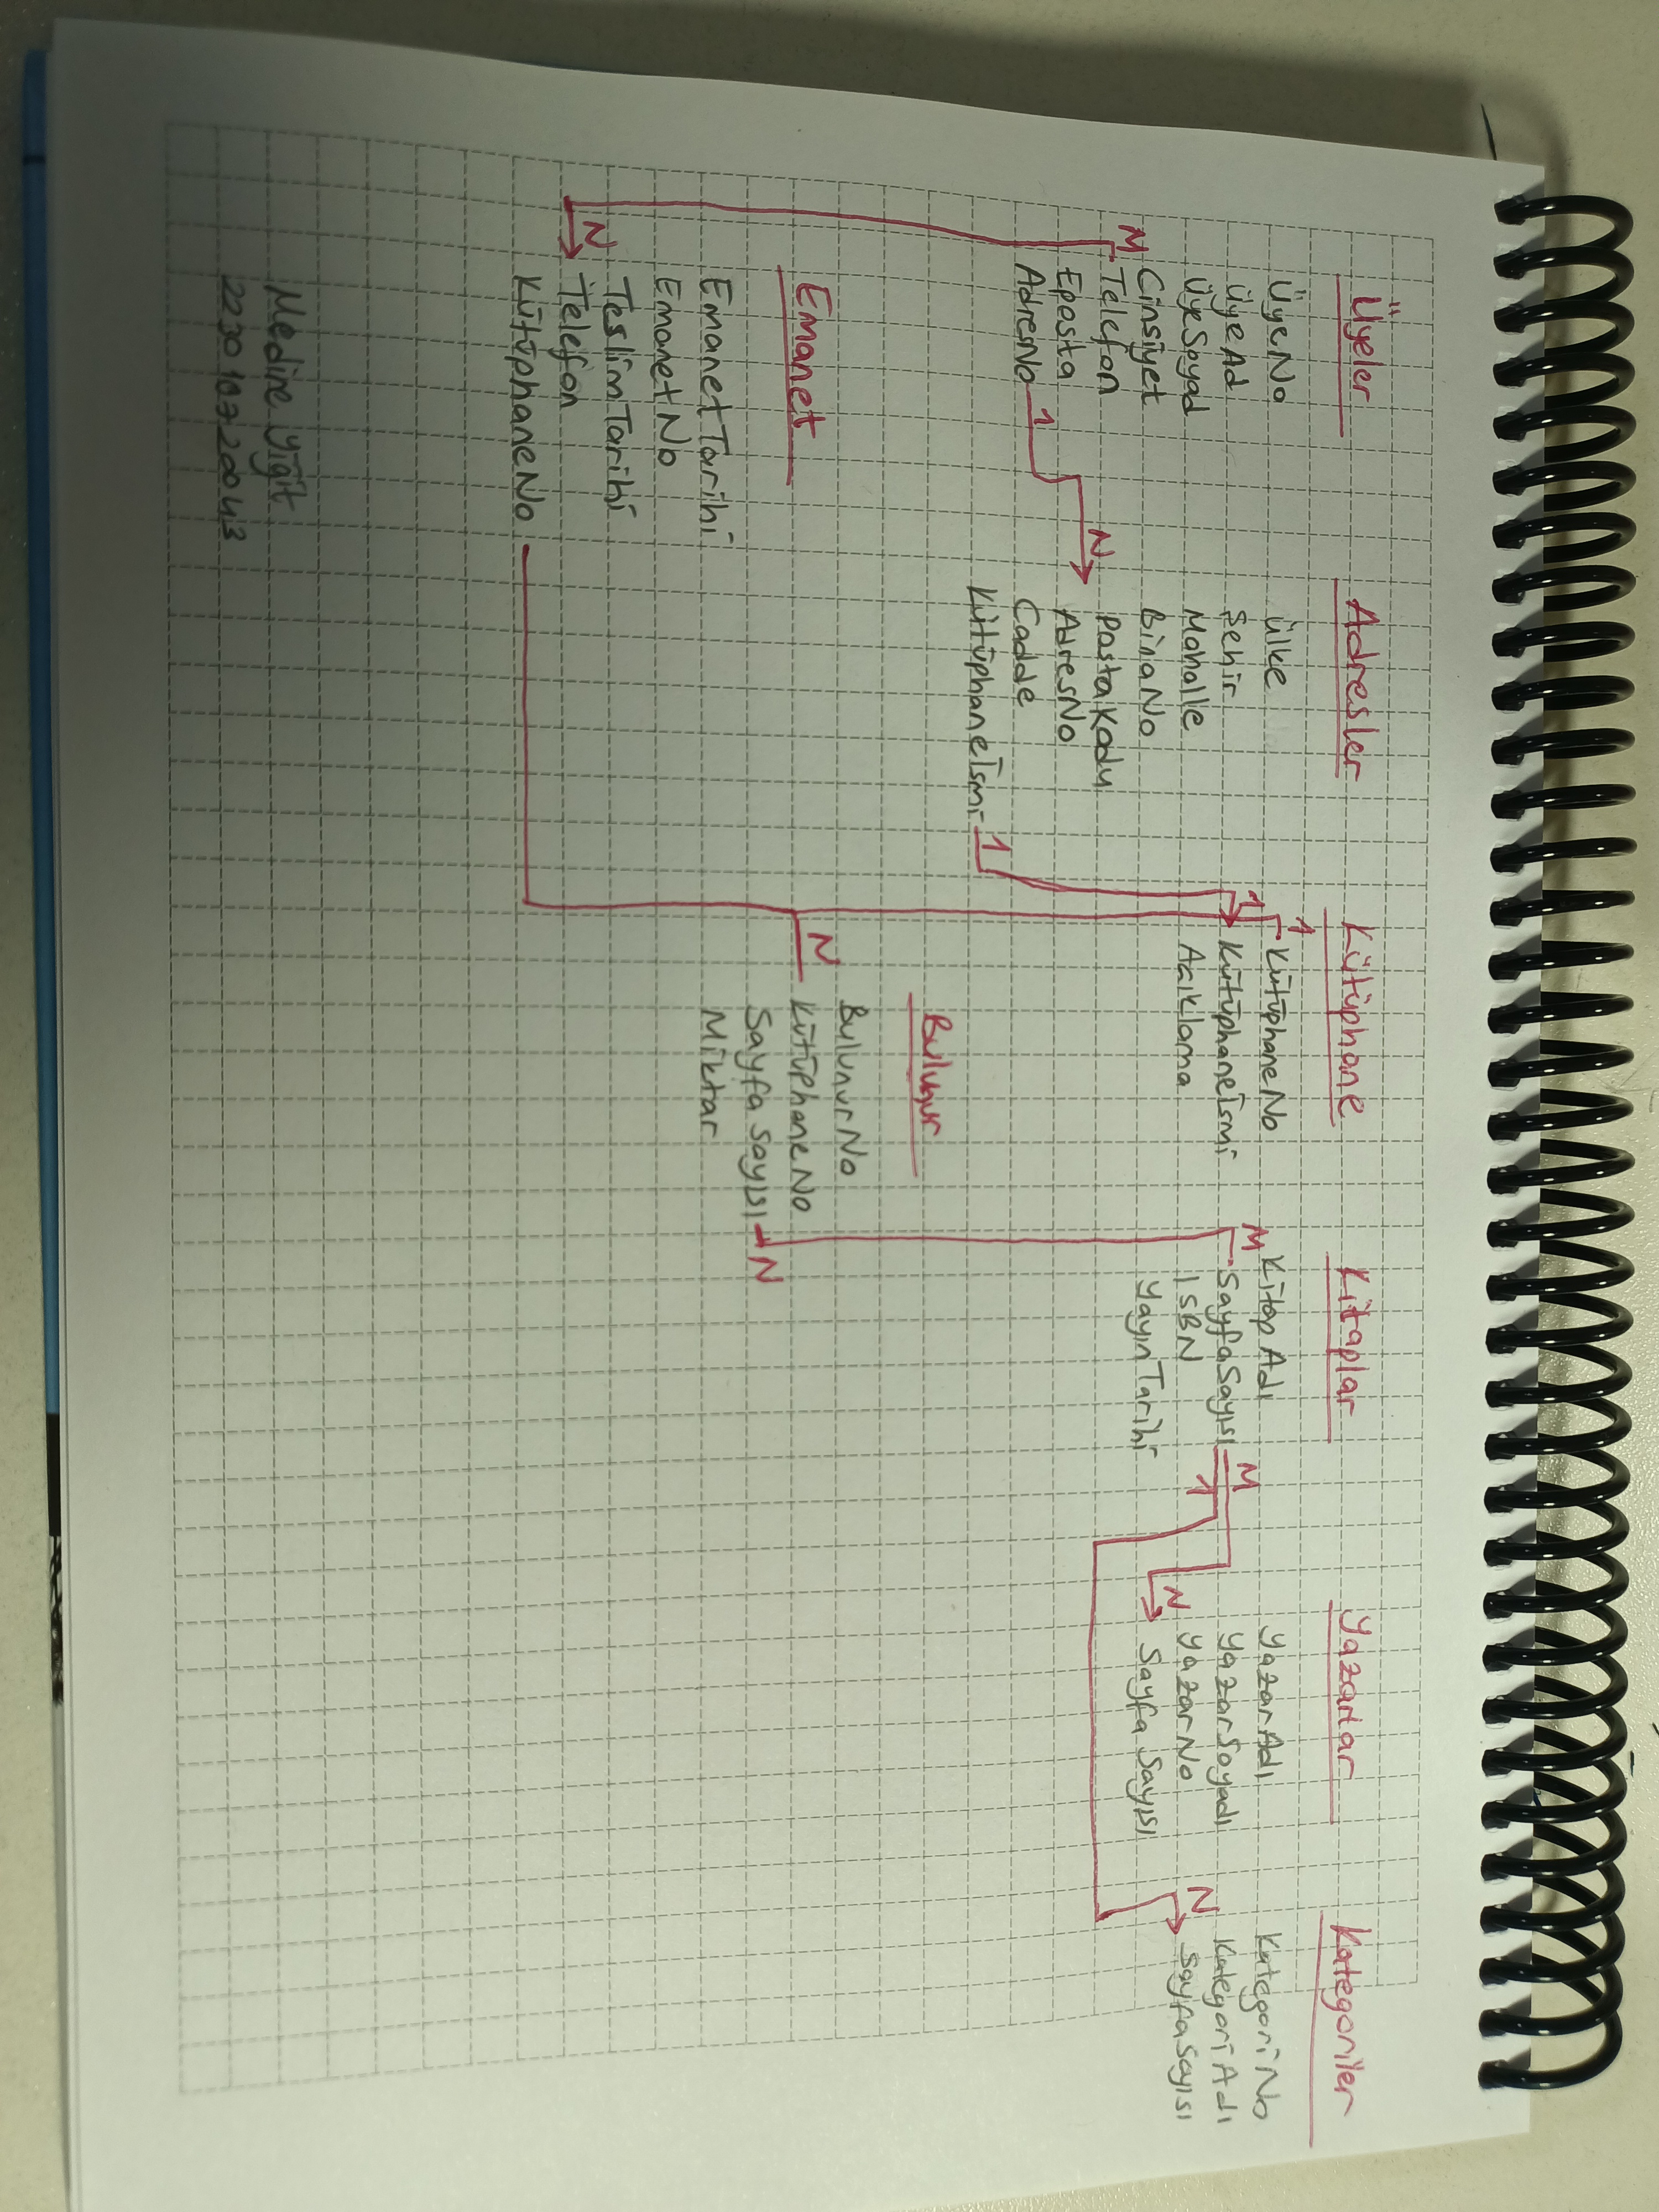 Üyeler
ÜyeNo
ÜyeAd
ÜyeSoyad
M Cinsiyet
Telefon
Eposta
AdresNo 1
N
Adresler
Ülke
Şehir
Mahalle
BinaNo
Posta Kodu
AdresNo
Cadde
Kütüphaneİsmi 1
Kütüphane
1
KütüphaneNo
1
Kütüphaneİsmi
Acıklama
Kitaplar
M Kitap Adı
SayfaSayısı M
ISBN 1
YayınTarihi
Yazarlar
YazarAdı
YazarSoyadı
YazarNo
N
Sayfa Sayısı
Kategoriler
KategoriNo
KategoriAdı
N
SayfaSayısı
Emanet
EmanetTarihi
EmanetNo
TeslimTarihi
N Telefon
KütüphaneNo
Bulunur
BulunurNo
N KütüphaneNo
Sayfa Sayısı N
Miktar
Medine Yiğit